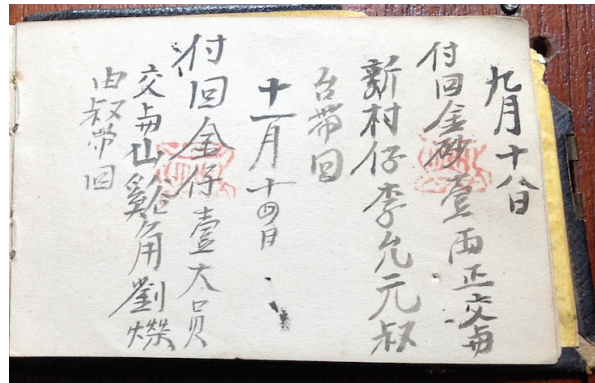 九月十八日
付回金砂壹両正交与
新村仔李允元叔
台帶回
十一月十四日
付回金仔壹大員
交与山雞角劉燦
由叔帶回